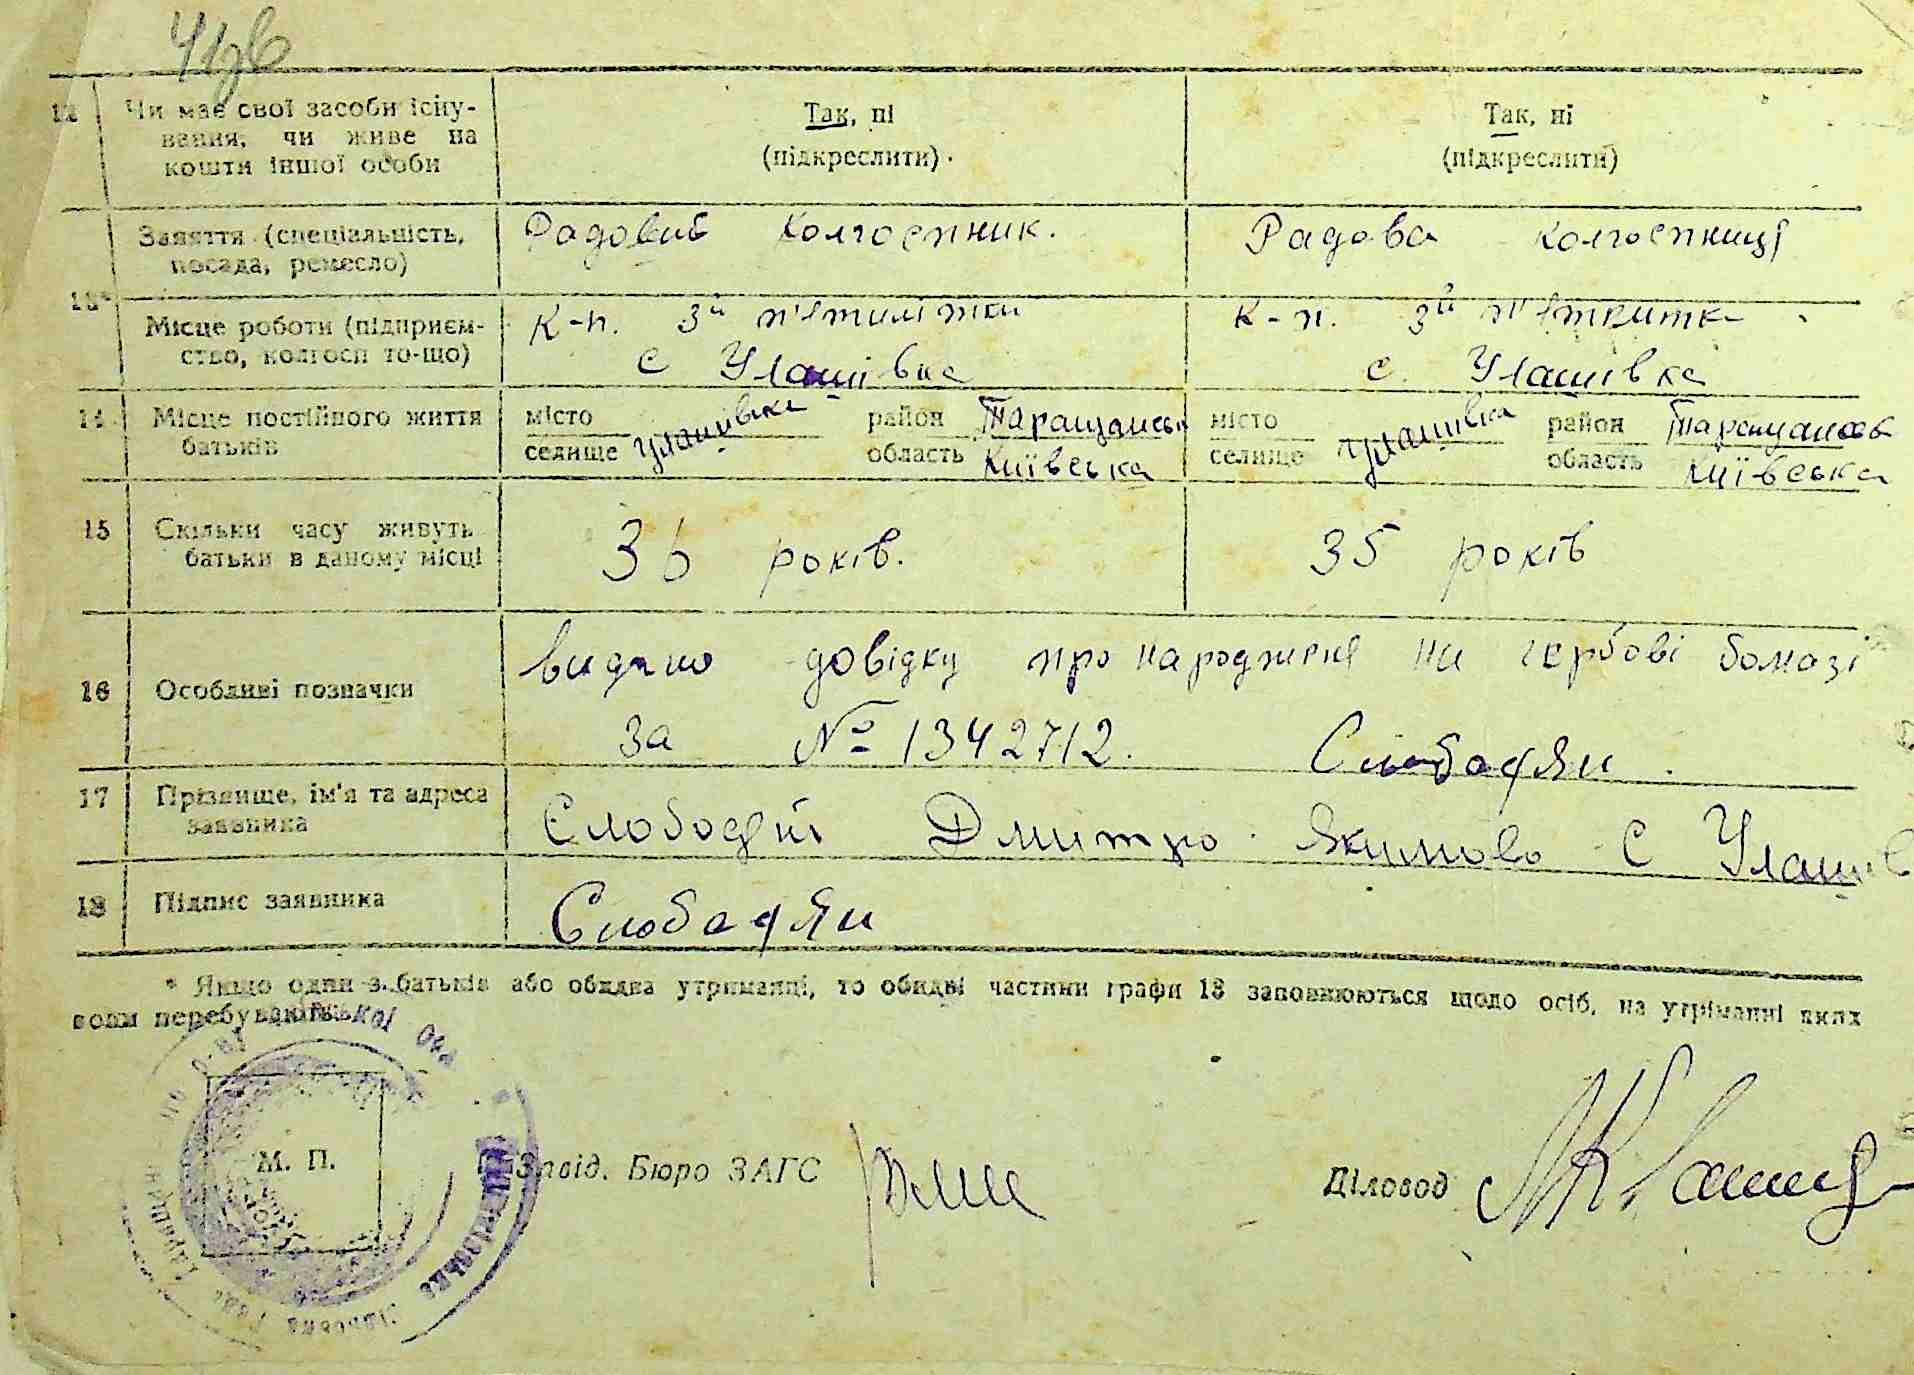 12 Чи має свої засоби існу-
вання, чи живе на
кошти іншої особи
Так, ні
(підкреслити)
Так, ні
(підкреслити)
13*
Заняття (спеціальність,
посада, ремесло)
Радовий Колгоспник.
Радова колгоспниця
Місце роботи (підприєм-
ство, колгосп то-що)
к-п. 3й п'ятилітки
с Улашівка
к-п. 3й
с. Улашівка
14 Місце постійного життя
батьків
місто
селище Улашівка
район Таращанськ
область Київська
місто
селище Улашівка
район Таращанськ
область Київська
15 Скільки часу живуть
батьки в даному місці
36 років.
35 років
16 Особливі позначки
видано довідку про народженя на гербові бомазі
за № 1342712.
17 Прізвище, ім'я та адреса
заявника
Дмитро с Улашів
18 Підпис заявника
* Якщо один з батьків або обидва утриманці, то обидві частини графи 13 заповнюються щодо осіб, на утриманні яких
вони перебувають.
М. П.
Завід. Бюро ЗАГС
Діловод